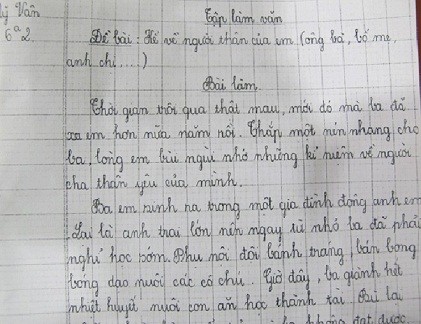 Vân
6ª2
Tập làm văn
Đề bài: Kể về người thân của em (ông bà, bố mẹ,
anh chị....)
Bài làm.
Thời gian trôi qua thật mau, mới đó mà ba đã
xa em hơn nửa năm rồi. Thắp một nén nhang cho
ba, lòng em bùi ngùi nhớ những kỉ niệm về người
cha thân yêu của mình.
Ba em sinh ra trong một gia đình đông anh em
Lại là anh trai lớn nên ngay từ nhỏ ba đã phải
nghỉ học sớm. Phụ nội đội bánh tráng, bán bong
bóng dạo nuôi các cô chú. Giờ đây, ba giành hết
nhiệt huyết nuôi con ăn học thành tài.
không đạt được